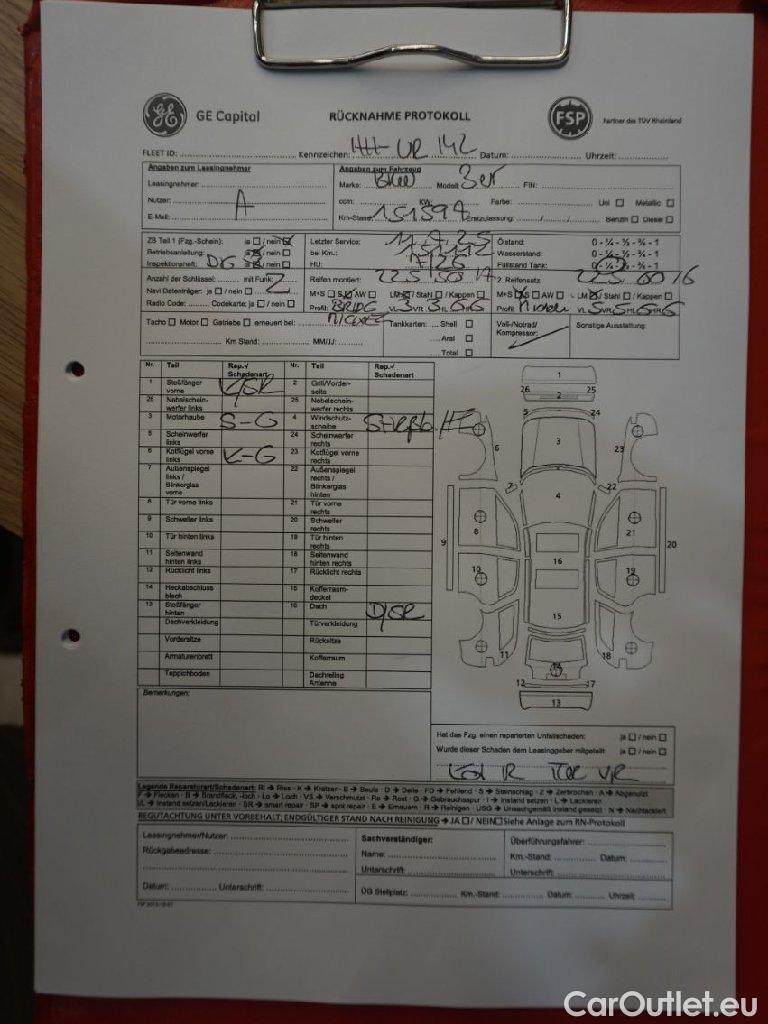 GE Capital RÜCKNAHME PROTOKOLL FSP Partner des TÜV Rheinland
FLEET ID: Kennzeichen: HH-UR 142 Datum: Uhrzeit:
Angaben zum Leasingnehmer Angaben zum Fahrzeug
Leasingnehmer: Marke: BMW Modell: 3er FIN:
Nutzer: A ccm: KW: Farbe: Uni Metallic
E-Mail: Km-Stand: Erstzulassung: Benzin Diesel
ZB Teil 1 (Fzg.-Schein): ja / nein Letzter Service: Ölstand: 0 - ¼ - ½ - ¾ - 1
Betriebsanleitung: ja / nein bei Km.: Wasserstand: 0 - ¼ - ½ - ¾ - 1
Inspektionsheft: DIG ja / nein HU: Füllstand Tank: 0 - ¼ - ½ - ¾ - 1
Anzahl der Schlüssel: mit Funk: 2 Reifen montiert: 225 50 17 2. Reifensatz
Navi Datenträger: ja / nein M+S SO AW LM / Stahl / Kappen M+S SO AW LM / Stahl / Kappen
Radio Code: Codekarte: ja / nein Profil: BRIDG VL VR HL HR Profil: VL VR HL HR
Tacho Motor Getriebe erneuert bei: Tankkarten: Shell Voll-/Notrad/ Sonstige Ausstattung:
Km Stand: MM/JJ: Aral Kompressor:
Total
Nr. Teil Rep./ Schadenart Nr. Teil Rep./ Schadenart
1 Stoßfänger vorne K/SR 2 Grill/Vorderseite
26 Nebelscheinwerfer links 25 Nebelscheinwerfer rechts
3 Motorhaube S-G 4 Windschutzscheibe
5 Scheinwerfer links 24 Scheinwerfer rechts
6 Kotflügel vorne links K-G 23 Kotflügel vorne rechts
7 Außenspiegel links / Blinkerglas vorne 22 Außenspiegel rechts / Blinkerglas hinten
8 Tür vorne links 21 Tür vorne rechts
9 Schweller links 20 Schweller rechts
10 Tür hinten links 19 Tür hinten rechts
11 Seitenwand hinten links 18 Seitenwand hinten rechts
12 Rücklicht links 17 Rücklicht rechts
14 Heckabschlussblech 15 Kofferraumdeckel
13 Stoßfänger hinten 16 Dach D/SR
Dachverkleidung Türverkleidung
Vordersitze Rücksitze
Armaturenbrett Kofferraum
Teppichboden Dachreling Antenne
1
26 2 25
5 24
6 3 23
7 4 22
8 21
9 20
10 16 19
15
11 14 18
12 17
13
Bemerkungen:
Hat das Fzg. einen reparierten Unfallschaden: ja / nein
Wurde dieser Schaden dem Leasinggeber mitgeteilt: ja / nein
Legende Reparaturart/Schadenart: Ri → Riss - K → Kratzer - B → Beule - D → Delle - FD → Fehlend - S → Steinschlag - Z → Zerbrochen - A → Abgenutzt
F → Flecken - B → Brandfleck, -loch - Lo → Loch - VS → Verschmutzt - Ro → Rost - G → Gebrauchsspur - I → Instand setzen - L → Lackieren
I/L → Instand setzen/Lackieren - SR → smart repair - SP → spot repair - E → Erneuern - R → Reinigen - USG → Unsachgemäß instand gesetzt - N → Nachlackiert
BEGUTACHTUNG UNTER VORBEHALT; ENDGÜLTIGER STAND NACH REINIGUNG → JA / NEIN Siehe Anlage zum RN-Protokoll
Leasingnehmer/Nutzer: Sachverständiger: Überführungsfahrer:
Rückgabeadresse: Name: Km.-Stand: Datum:
Unterschrift: Unterschrift:
Datum: Unterschrift: ÜG Stellplatz: Km.-Stand: Datum: Uhrzeit
CarOutlet.eu